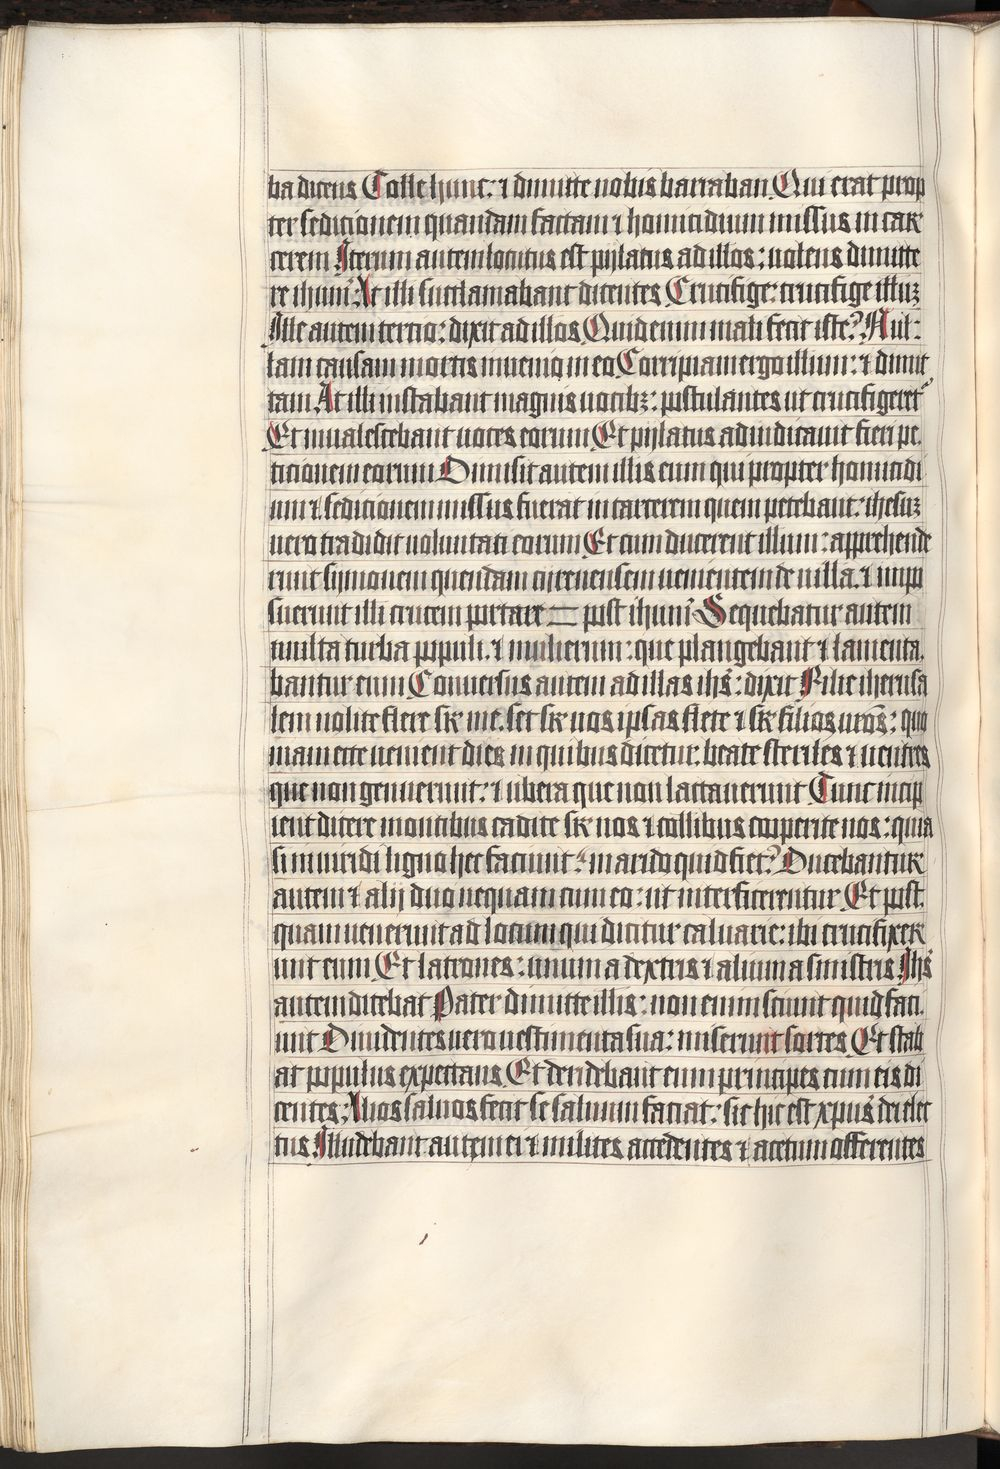 ba dicens Tolle hunc: ⁊ dimitte nobis barraban Qui erat prop
ter sedicionem quandam factam ⁊ homicidium missus in car
cerem Iterum autem locutus est pylatus ad illos: uolens dimitte
re ihum̄ At illi succlamabant dicentes Crucifige: crucifige illuꝫ
Ille autem tercio: dixit ad illos Quid enim mali fecit iste? Nul:
lam causam mortis inuenio in eo Corripiam ergo illum: ⁊ dimit
tam At illi instabant magnis uocibꝫ: postulantes ut crucifigeret᷑
Et inualescebant uoces eorum Et pylatus adiudicauit fieri pe.
ticionem eorum Dimisit autem illis eum qui propter homicidi
um ⁊ sedicionem missus fuerat in carcerem quem petebant: ihesuꝫ
uero tradidit uoluntati eorum Et cum ducerent illum: apprehende
runt symonem quendam cyrenensem uenientem de uilla. ⁊ impo
suerunt illi crucem portare — post ihum̄ Sequebatur autem
multa turba populi. ⁊ mulierum: que plangebant ⁊ lamenta.
bantur eum Conuersus autem ad illas ihs̄: dixit Filie iherusa
lem nolite flere sr̄ me. set sr̄ uos ipsas flete ⁊ sr̄ filios uros̄: quo
niam ecce uenient dies in quibus dicetur. beate steriles ⁊ uentres
que non genuerunt: ⁊ ubera que non lactauerunt Tunc incip
ient dicere montibus cadite sr̄ nos ⁊ collibus cooperite nos: quia
si in uiridi ligno hec faciunt: in arido quid fiet? Ducebantur
autem ⁊ alij duo nequam cum eo: ut interficerentur Et post.
quam uenerunt ad locum qui dicitur caluarie: ibi crucifixer
unt eum Et latrones: unum a dextris ⁊ alium a sinistris Ihs̄
autem dicebat Pater dimitte illis: non enim sciunt quid faci.
unt Diuidentes uero uestimenta sua: miserunt sortes Et stab
at populus expectans Et deridebant eum principes cum eis di
centes: Alios saluos fecit se saluum faciat: sic hic est xpus̄ dei elec
tus Illudebant autem ei ⁊ milites accedentes ⁊ acetum offerentes